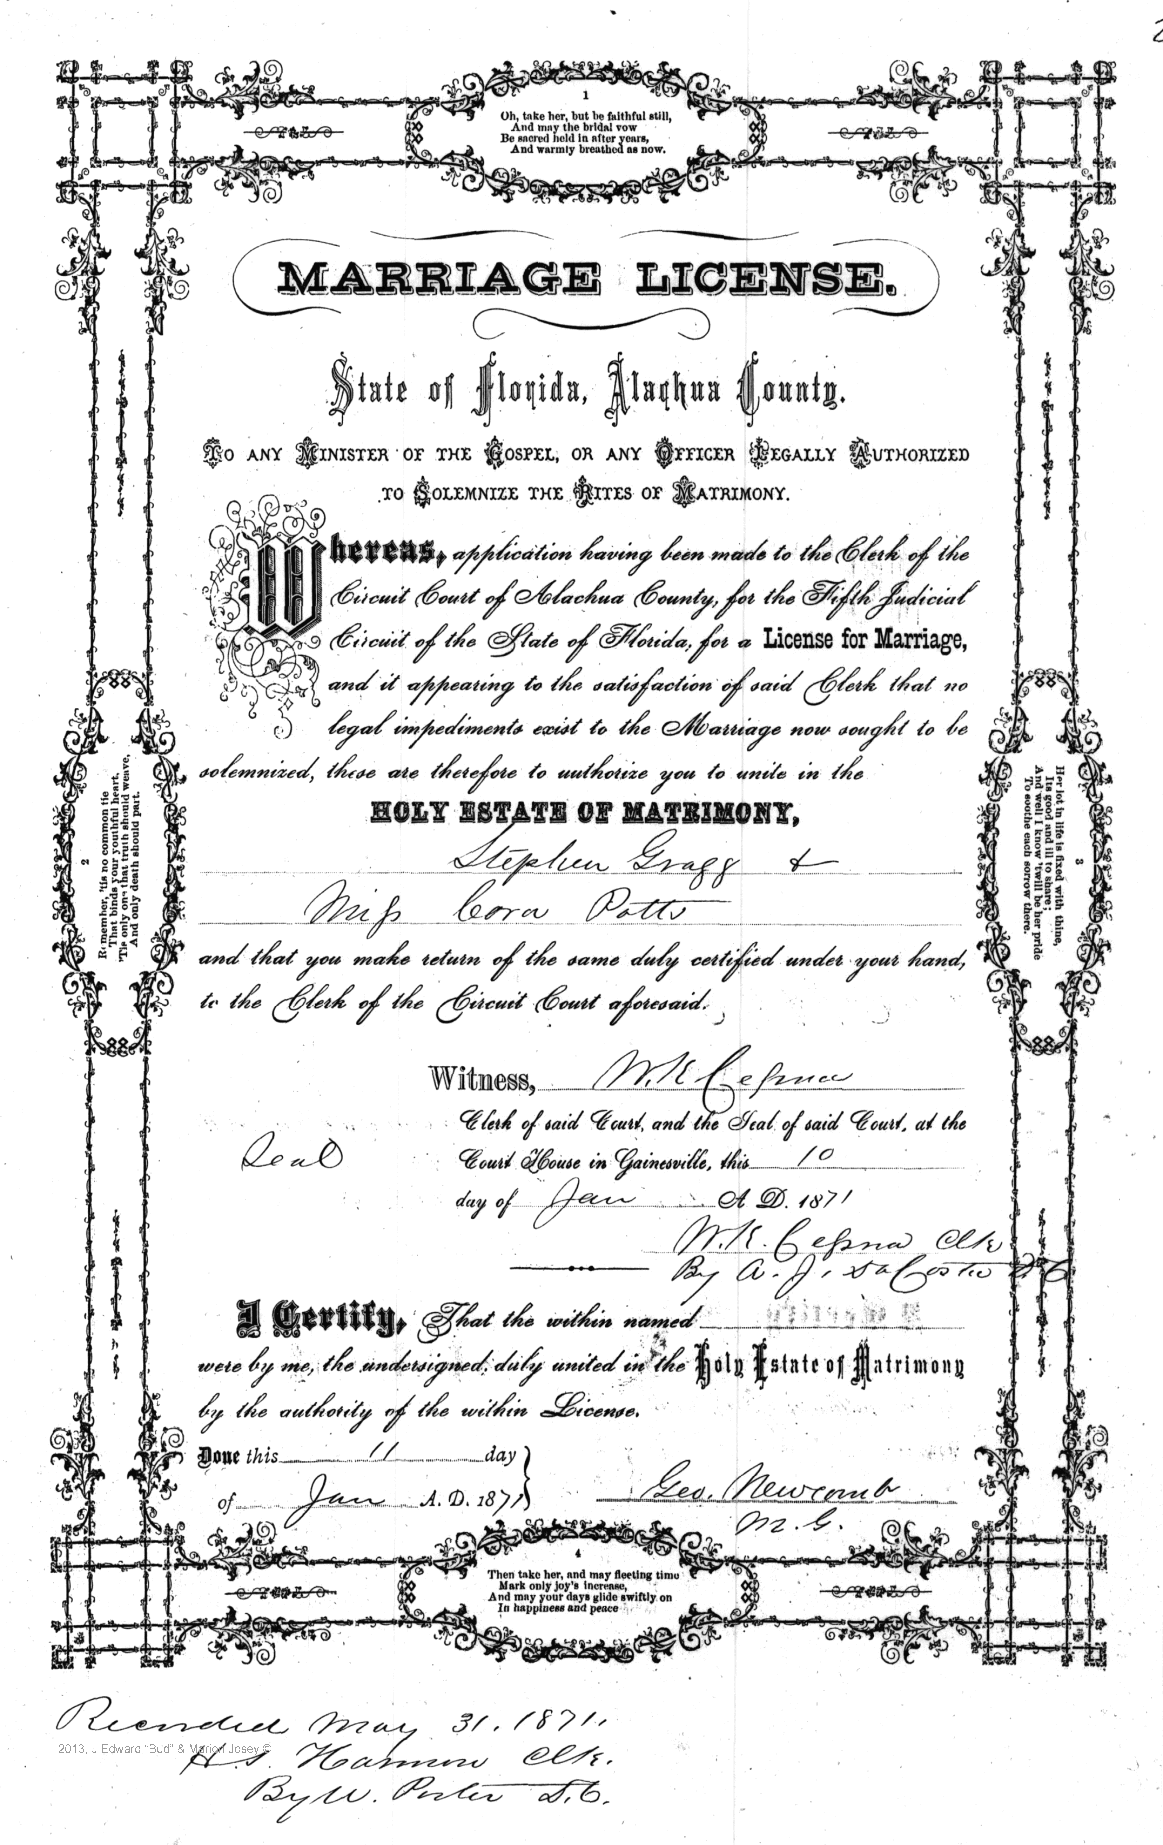 1
Oh, take her, but be faithful still,
And may the bridal vow
Be sacred held in after years,
And warmly breathed as now.
MARRIAGE LICENSE.
State of Florida, Alachua County.
TO ANY MINISTER OF THE GOSPEL, OR ANY OFFICER LEGALLY AUTHORIZED
TO SOLEMNIZE THE RITES OF MATRIMONY.
Whereas, application having been made to the Clerk of the
Circuit Court of Alachua County, for the Fifth Judicial
Circuit of the State of Florida, for a License for Marriage,
and it appearing to the satisfaction of said Clerk that no
legal impediments exist to the Marriage now sought to be
solemnized, these are therefore to authorize you to unite in the
HOLY ESTATE OF MATRIMONY,
Stephen Gragg &
Miss Cora Potts
and that you make return of the same duly certified under your hand,
to the Clerk of the Circuit Court aforesaid.
Witness, W. K. Cessna
Clerk of said Court, and the Seal of said Court, at the
Seal
Court House in Gainesville, this 10
day of Jan A. D. 1871
W. K. Cessna Clk
By A. J. DaCosta D C
I Certify, That the within named
were by me, the undersigned, duly united in the Holy Estate of Matrimony
by the authority of the within License.
Done this 11 day
of Jan A. D. 1871
Geo. Newcomb
M. G.
2
Remember, 'tis no common tie
That binds your youthful heart,
'Tis only one that truth should weave,
And only death should part.
3
Her lot in life is fixed with thine,
Its good and ill to share;
And well I know 'twill be her pride
To soothe each sorrow there.
4
Then take her, and may fleeting time
Mark only joy's increase,
And may your days glide swiftly on
In happiness and peace
Recorded May 31. 1871.
2013, J Edward "Bud" & Marion Josey ©
H. S. Harmon Clk.
By W. Porter D. C.